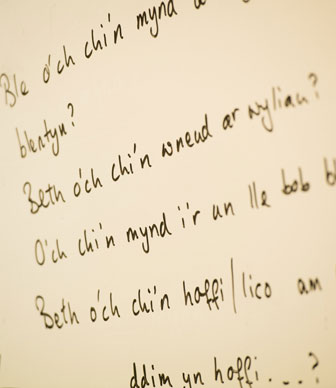 Ble o'ch chi'n mynd
blentyn?
Beth o'ch chi'n wneud ar wyliau?
O'ch chi'n mynd i'r un lle bob
Beth o'ch chi'n hoffi/lico am
ddim yn hoffi....?